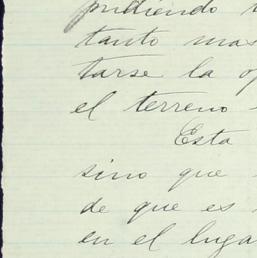 pudiendo
tanto mas
tarse la
el terreno
Esta
sino que
de que es
en el